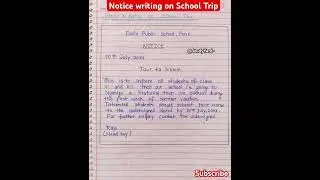 Notice writing on School Trip
Delhi Public School, Pune
NOTICE
10th July, 2023
Tour to Sikkim
This is to inform all students of class
XI and XII that our school is going to
organise a Historical tour to Sikkim during
the first week of summer vacation.
Interested students should submit their name
to the undersigned latest by 15th July, 2023.
For further enquiry contact the undersigned.
Raja
(Head boy)
Subscribe